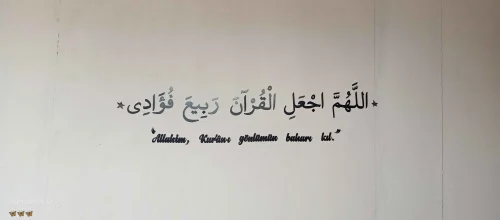 اللَّهُمَّ اجْعَلِ الْقُرْآنَ رَبِيعَ فُؤَادِى
"Allahım, Kur'ânı gönlümün baharı kıl."